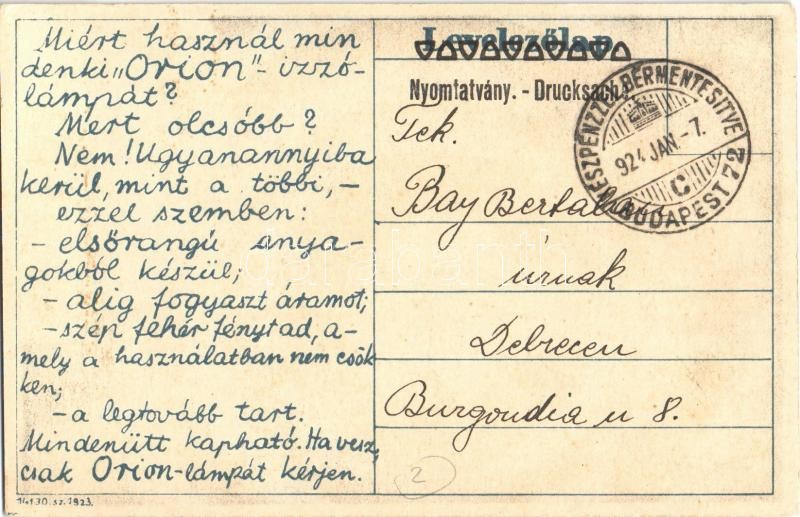 Miért használ min
denki „Orion"-izzó-
lámpát?
Mert olcsóbb?
Nem! Ugyanannyiba
kerül, mint a többi, –
ezzel szemben:
- elsőrangú anya-
gokból készül;
- alig fogyaszt áramot;
- szép fehér fényt ad, a-
mely a használatban nem csök
ken;
- a legtovább tart.
Mindenütt kapható. Ha vesz,
csak Orion-lámpát kérjen.
14130. sz. 1923.
Levelezőlap
Nyomtatvány. - Drucksache
KÉSZPÉNZZEL BÉRMENTESÍTVE
924 JAN. -7.
C
BUDAPEST 72
Tek.
Bay Bertalan
úrnak
Debrecen
Burgondia u 8.
2
darabanth